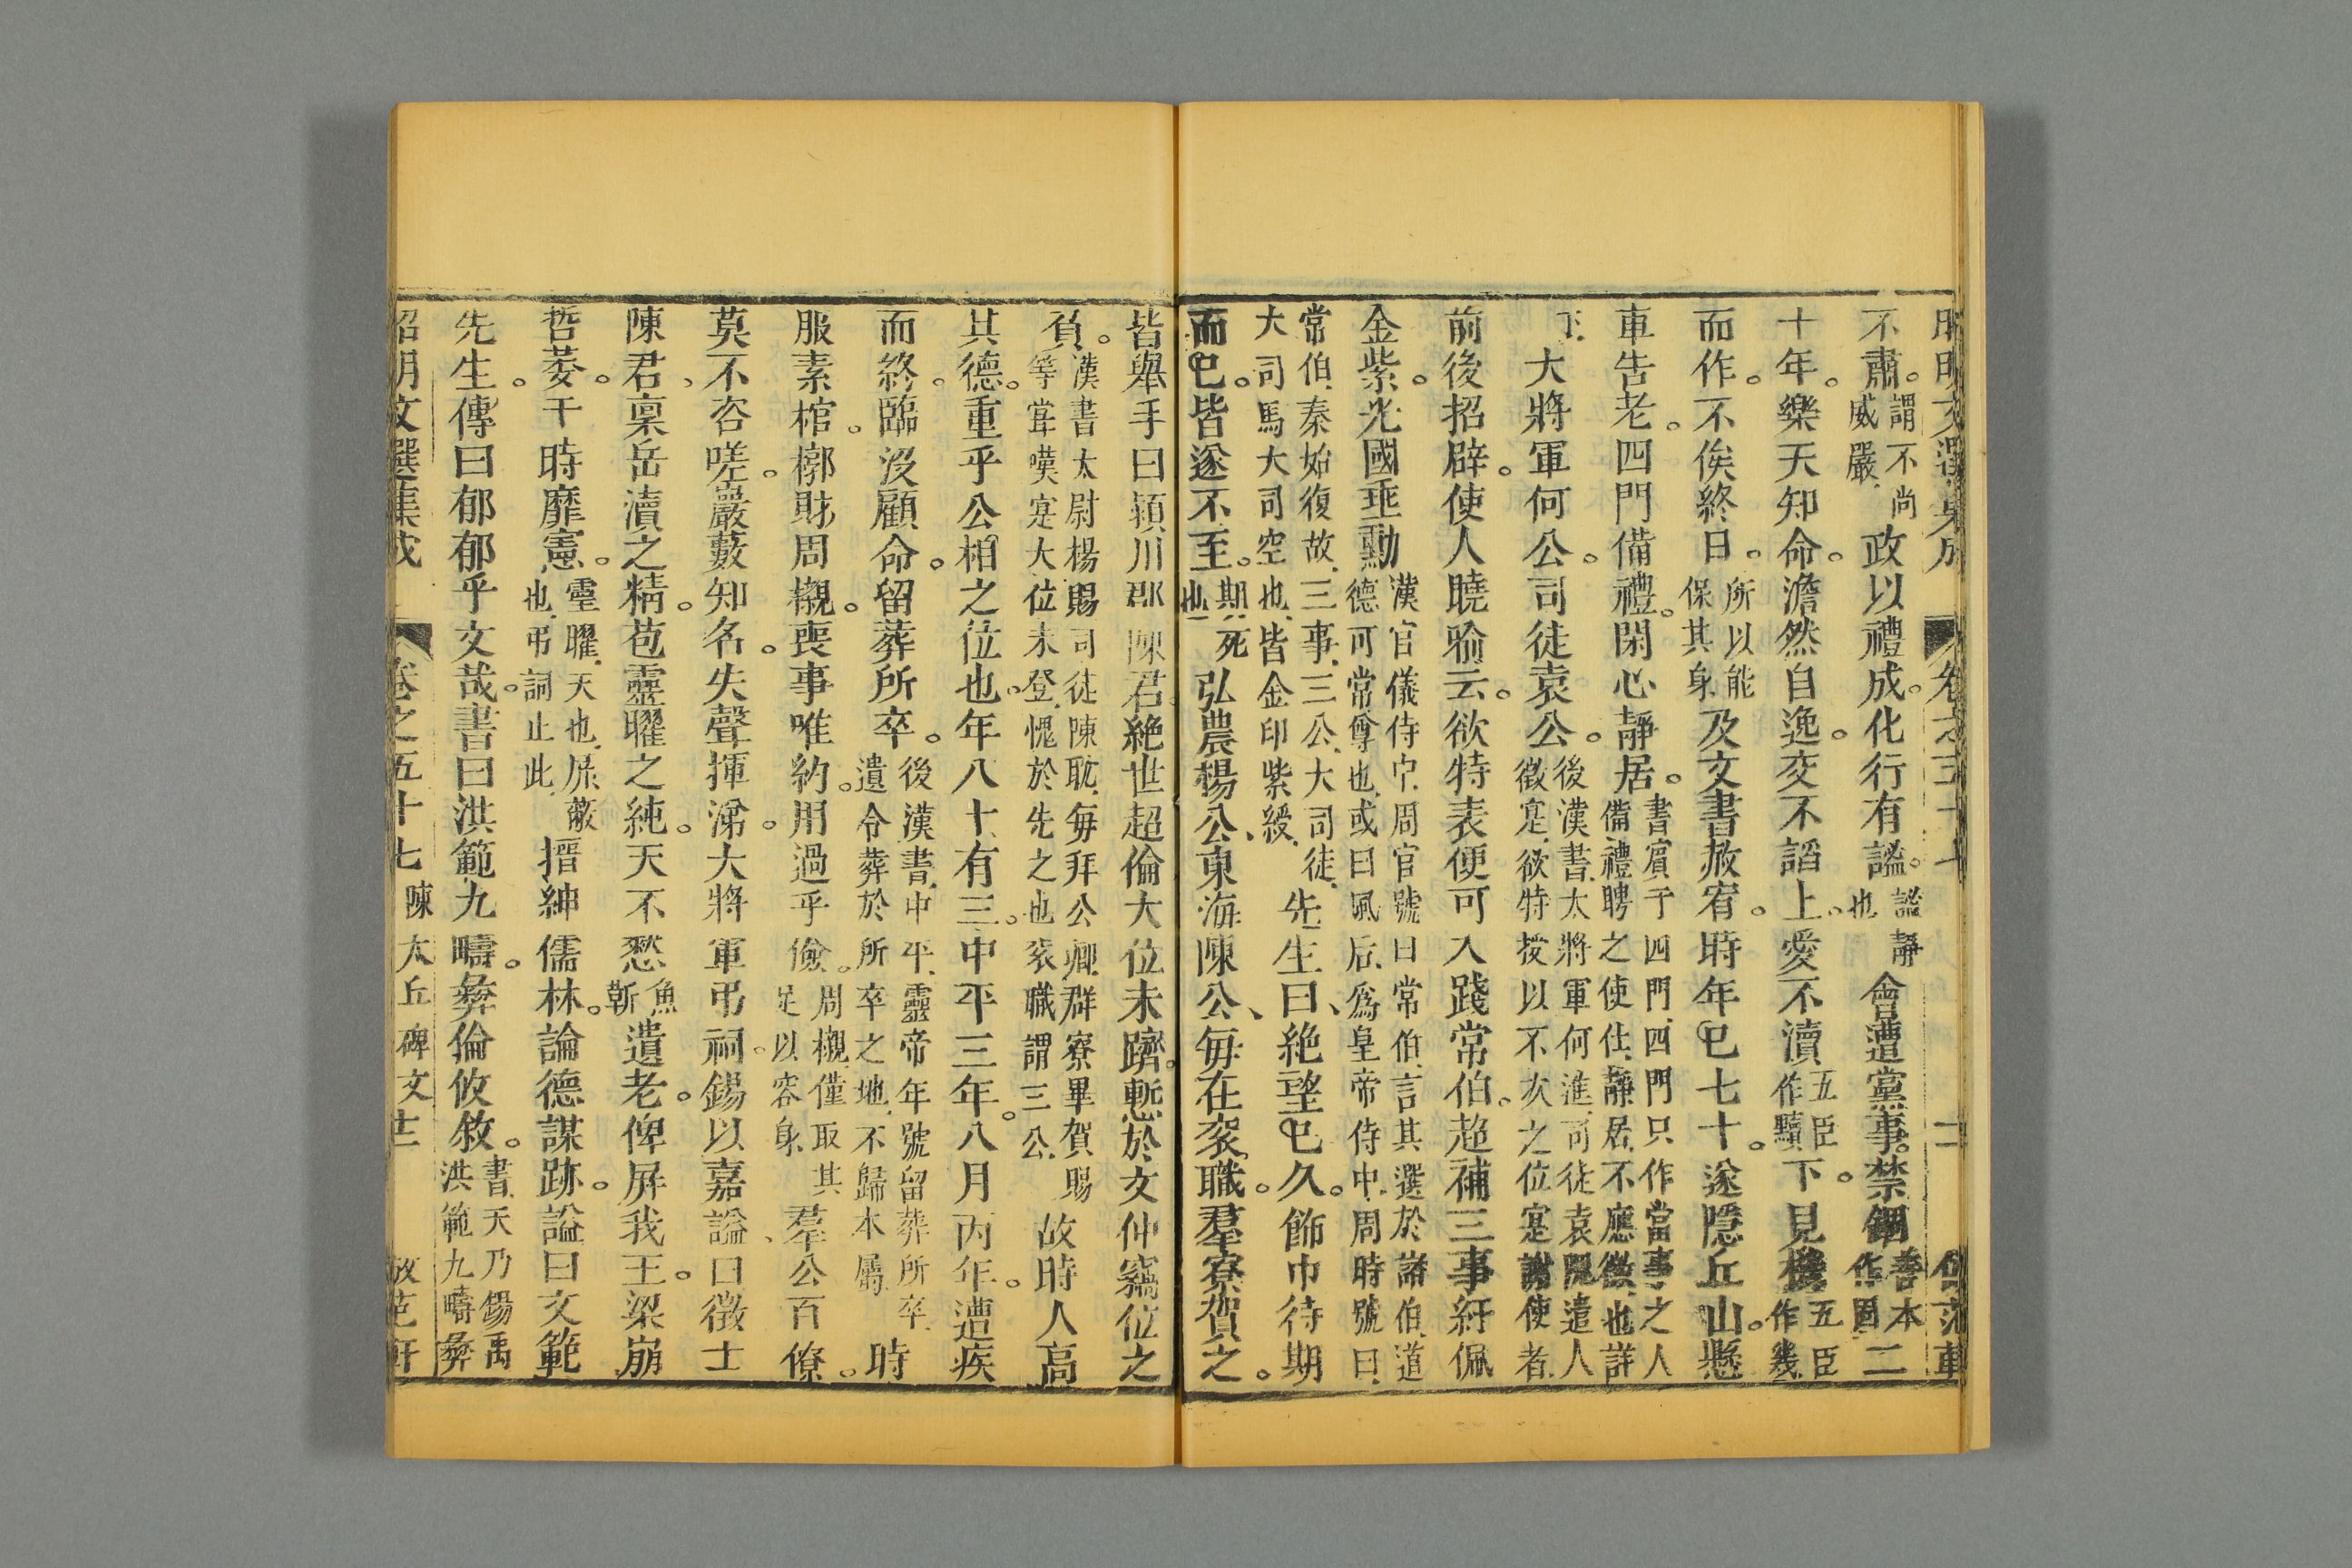 不肅。謂不尚威嚴。政以禮成。化行有謐。謐靜也 會遭黨事。禁錮善本作固二
十年。樂天知命。澹然自逸。交不諂上。愛不瀆五臣作黷下。見機五臣作幾
而作。不俟終日。所以能保其身 及文書赦宥。時年已七十。遂隱丘山。懸
車告老。四門備禮。閑心靜居。書賓于四門四門只作當事之人備禮聘之使仕靜居不應徵也詳
下 大將軍何公。司徒袁公。後漢書太將軍何進司徒袁隗遣人徵寔欲特授以不次之位寔謝使者
前後招辟。使人曉喻云。欲特表便可入踐常伯。超補三事。紆佩
金紫。光國垂勳 漢官儀侍中周官號曰常伯言其選於諸伯道德可常尊也或曰風后為皇帝侍中周時號曰
常伯秦始復故三事三公大司徒大司馬大司空也皆金印紫綬 先生曰、絕望已久。飾巾待期
而已。皆遂不至。期死也 弘農楊公、東海陳公、每在袞職。羣寮賀之。
皆舉手曰潁川郡陳君絕世超倫大位未躋慙於文仲竊位之
負。漢書太尉楊賜司徒陳耽每拜公卿群寮畢賀賜等常嘆寔大位未登愧於先之也袞職謂三公 故時人高
其德。重乎公相之位也。年八十有三。中平三年。八月丙年。遭疾
而終。臨沒顧命。留葬所卒。後漢書中平靈帝年號留葬所卒遺令葬於所卒之地不歸本屬 時
服素棺。槨財周櫬。喪事唯約。用過乎儉。周櫬僅取其足以容身 羣公百僚。
莫不咨嗟。巖藪知名。失聲揮涕。大將軍弔祠。錫以嘉謚、曰徵士
陳君、稟岳瀆之精。苞靈曜之純。天不愁魚靳遺老。俾屏我王。梁崩
哲萎。于時靡憲。靈曜天也屏蔽也弔詞止此 搢紳儒林。論德謀跡。謚曰文範
先生。傳曰郁郁乎文哉。書曰洪範九疇。彝倫攸敘。書天乃錫禹洪範九疇彝
昭明文選集成 卷之五十七 陳太丘碑文 十二 倣范軒